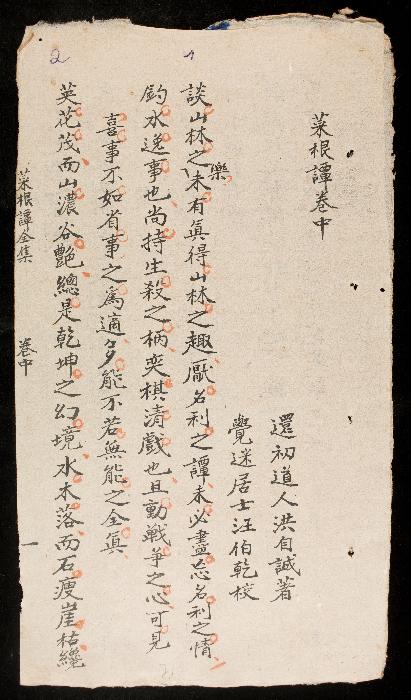 菜根譚卷中
還初道人洪自誠著
覺迷居士汪伯乾校
1
談山林之樂未有眞得山林之趣厭名利之譚未必盡忘名利之情
釣水逸事也尚持生殺之柄奕棋清戲也且動戰爭之心可見
喜事不如省事之為適多能不若無能之全眞
2
英花茂而山濃谷艶總是乾坤之幻境水木落而石瘦崖枯纔
菜根譚全集 卷中 一